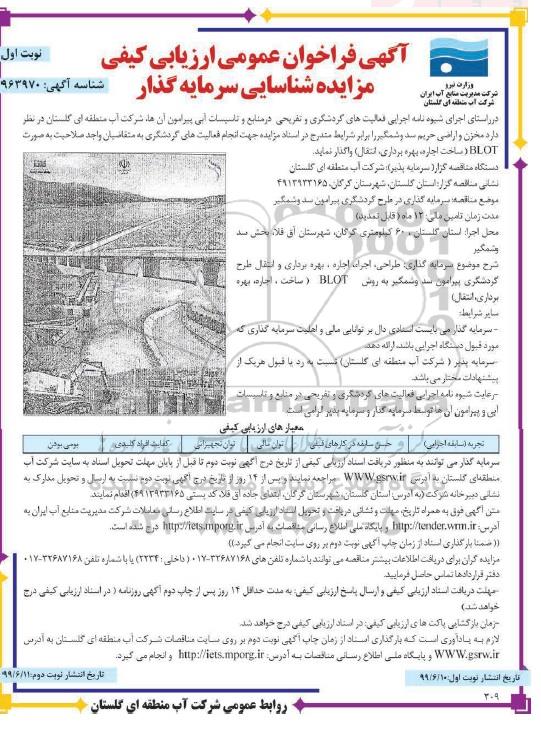 نوبت اول
آگهی فراخوان عمومی ارزیابی کیفی
مزایده شناسایی سرمایه گذار
شناسه آگهی: ۹۶۳۹۷۰
وزارت نیرو
شرکت مدیریت منابع آب ایران
شرکت آب منطقه ای گلستان
درراستای اجرای شیوه نامه اجرایی فعالیت های گردشگری و تفریحی درمنابع و تاسیسات آبی پیرامون آن ها، شرکت آب منطقه ای گلستان در نظر
دارد مخزن و اراضی حریم سد وشمگیررا برابر شرایط مندرج در اسناد مزایده جهت انجام فعالیت های گردشگری به متقاضیان واجد صلاحیت به صورت
BLOT (ساخت اجاره، بهره برداری، انتقال) واگذار نماید.
دستگاه مناقصه گزار( سرمایه پذیر): شرکت آب منطقه ای گلستان
نشانی مناقصه گزار: استان گلستان، شهرستان گرگان، ۴۹۱۳۹۳۳۱۶۵
موضع مناقصه: سرمایه گذاری در طرح گردشگری پیرامون سد وشمگیر
مدت زمان تامین مالی: ۱۲ ماه ( قابل تمدید)
محل اجرا: استان گلستان ، ۶۰ کیلومتری گرگان، شهرستان آق قلا، بخش سد
وشمگیر
شرح موضوع سرمایه گذاری: طراحی، اجرا، اجاره ، بهره برداری و انتقال طرح
گردشگری پیرامون سد وشمگیر به روش BLOT ( ساخت ، اجاره، بهره
برداری، انتقال)
سایر شرایط:
-سرمایه گذار می بایست اسنادی دال بر توانایی مالی و اهلیت سرمایه گذاری که
مورد قبول دستگاه اجرایی باشد، ارائه دهد.
-سرمایه پذیر ( شرکت آب منطقه ای گلستان) نسبت به رد یا قبول هریک از
پیشنهادات مختار می باشد.
-رعایت شیوه نامه اجرایی فعالیت های گردشگری و تفریحی در منابع و تاسیسات
آبی و پیرامون آن ها توسط سرمایه گذار و سرمایه پذیر الزامی است.
معیار های ارزیابی کیفی
تجربه (سابقه اجرایی) حسن سابقه در کارهای قبلی توان مالی توان تجهیزاتی کفایت افراد کلیدی بومی بودن
سرمایه گذار می توانند به منظور دریافت اسناد ارزیابی کیفی از تاریخ درج آگهی نوبت دوم تا قبل از پایان مهلت تحویل اسناد به سایت شرکت آب
منطقه‌ای گلستان به آدرس WWW.gsrw.ir مراجعه نمایند و پس از ۱۴ روز از تاریخ درج آگهی نوبت دوم نسبت به ارسال و تحویل مدارک به
نشانی دبیرخانه شرکت (به آدرس: استان گلستان، شهرستان گرگان، ابتدای جاده آق قلا، کد پستی ۴۹۱۳۹۳۳۱۶۵) اقدام نمایند.
متن آگهی فوق به همراه تاریخ، مهلت و نشانی دریافت و تحویل اسناد ارزیابی کیفی در سایت اطلاع رسانی معاملات شرکت مدیریت منابع آب ایران به
آدرس: http://tender.wrm.ir و پایگاه ملی اطلاع رسانی مناقصات به آدرس http://iets.mporg.ir درج شده است.
(( ضمنا بارگذاری اسناد از زمان چاپ آگهی نوبت دوم بر روی سایت انجام می گیرد))
مزایده گران برای دریافت اطلاعات بیشتر مناقصه می توانند با شماره تلفن های ۳۲۶۸۷۱۶۸-۰۱۷ ( داخلی : ۲۲۳۴) یا با شماره تلفن ۳۲۶۸۷۱۶۸-۰۱۷
دفتر قراردادها تماس حاصل فرمایید.
-مهلت دریافت اسناد ارزیابی کیفی و ارسال پاسخ ارزیابی کیفی: به مدت حداقل ۱۴ روز پس از چاپ دوم آگهی روزنامه ( در اسناد ارزیابی کیفی درج
خواهد شد.)
-زمان بازگشایی پاکت ها ی ارزیابی کیفی: در اسناد ارزیابی کیفی درج خواهد شد.
لازم بـه یـادآوری اسـت کـه بارگذاری اسـناد از زمان چاپ آگهی نوبت دوم بر روی سـایت مناقصات شـرکت آب منطقه ای گلسـتان به آدرس
WWW.gsrw.ir و پایـگاه ملـی اطلاع رسـانی مناقصـات بـه آدرس: http://iets.mporg.ir و انجام می گیرد.
تاریخ انتشار نوبت اول: ۹۹/۶/۱۰
تاریخ انتشار نوبت دوم: ۹۹/۶/۱۱
۳۰۹
روابط عمومی شرکت آب منطقه ای گلستان